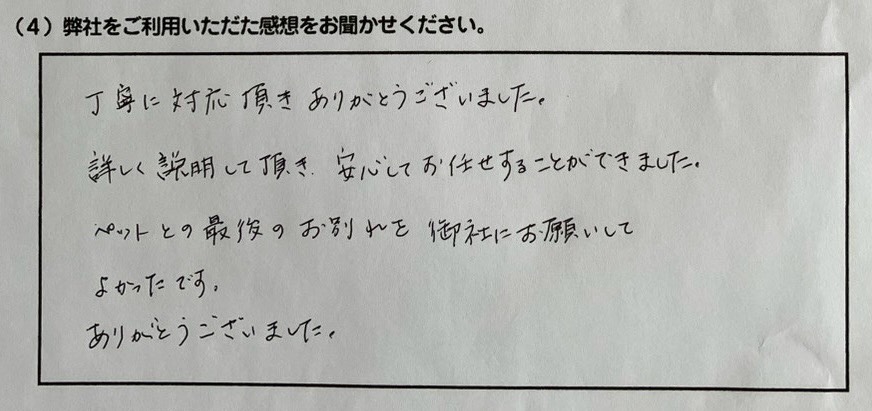 （４）弊社をご利用いただた感想をお聞かせください。
丁寧に対応頂きありがとうございました。
詳しく説明して頂き、安心してお任せすることができました。
ペットとの最後のお別れを御社にお願いして
よかったです。
ありがとうございました。